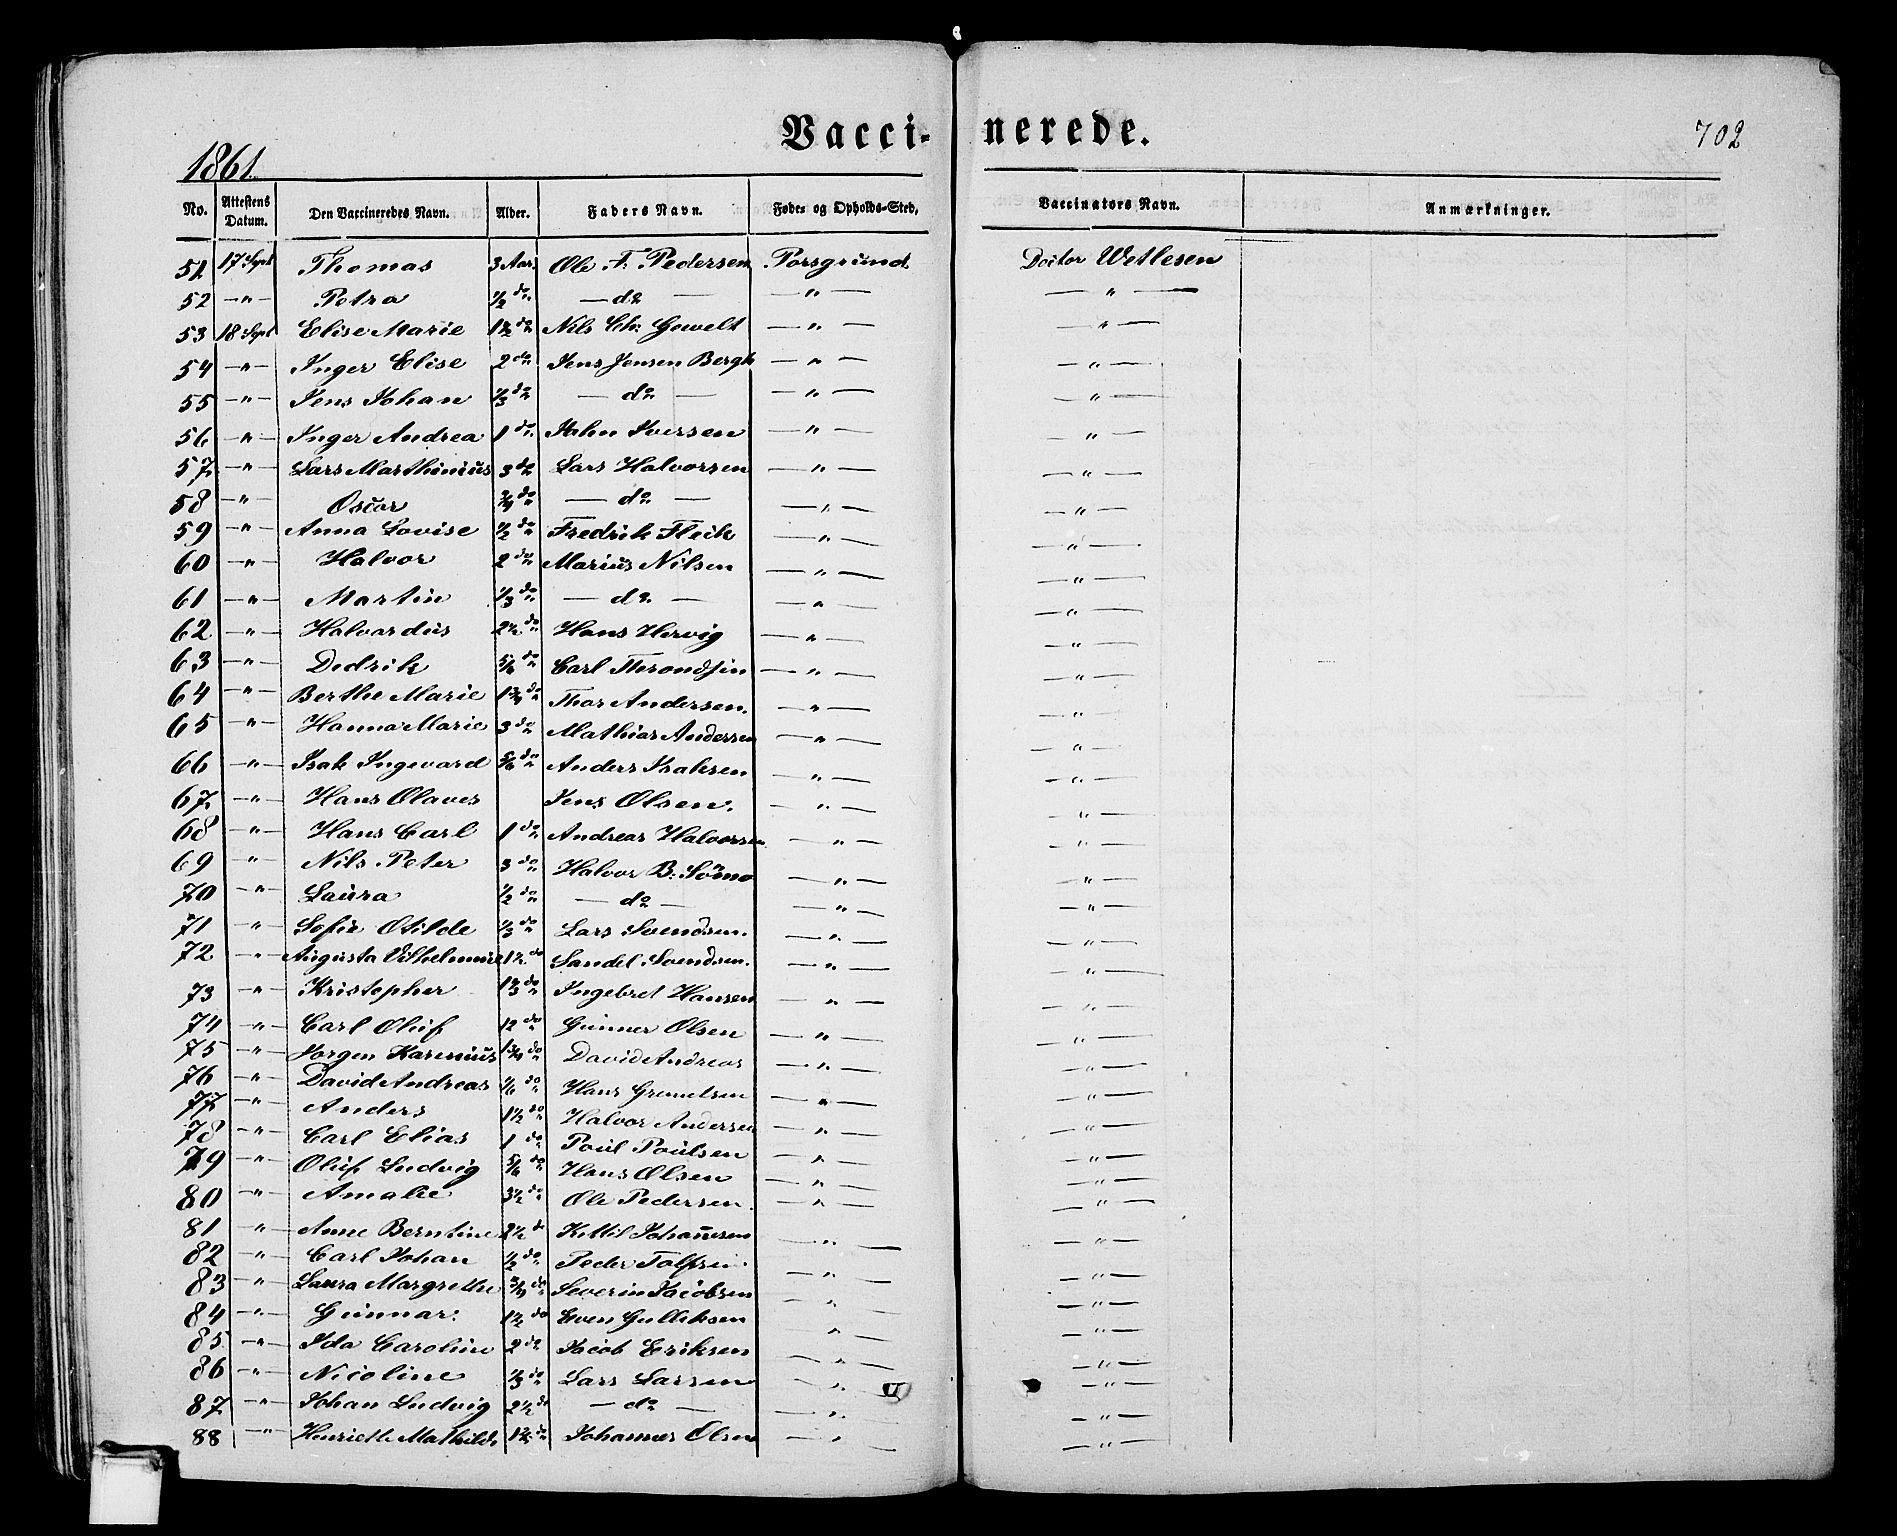 Vaccinerede.
702
1861.
No. Attestens Datum. Den Vaccineredes Navn. Alder. Faders Navn. Føde- og Opholds-Sted. Vaccinators Navn. Anmærkninger.
51 17 Sept Thomas 3 Aar. Ole F. Pedersen Porsgrund Doctor Wetlesen
52 —"— Petra 1/2 do — do — —"— —"—
53 18 Sept Elise Marie 1 1/2 do Nils Ch: Gewelt —"— —"—
54 —"— Inger Elise 2 do Jens Jensen Bergh —"— —"—
55 —"— Jens Johan 1/3 do — do — —"— —"—
56 —"— Inger Andrea 1 do John Iversen —"— —"—
57 —"— Lars Marthinius 3 do Lars Halvorsen —"— —"—
58 —"— Oscar 3/4 do — do — —"— —"—
59 —"— Anna Lovise 1/2 do Fredrik Fleik —"— —"—
60 —"— Halvor 2 do Marius Nilsen —"— —"—
61 —"— Martin 1/3 do — do — —"— —"—
62 —"— Halvardus 2 1/2 do Hans Hervig —"— —"—
63 —"— Dedrik 5/6 do Carl Therondsen —"— —"—
64 —"— Berthe Marie 1 3/4 do Thor Andersen. —"— —"—
65 —"— Hanna Marie 3 do Mathias Andersen —"— —"—
66 —"— Isak Ingevard 5/6 do Anders Isaksen —"— —"—
67 —"— Hans Olaves Jens Olsen. —"— —"—
68 —"— Hans Carl 1 do Andreas Halvorsen —"— —"—
69 —"— Nils Peter 3 do Halvor B: —"— —"—
70 —"— Laura 1/2 do — do — —"— —"—
71 —"— Sofie Otilde 1/3 do Lars Svendsen. —"— —"—
72 —"— Augusta Vilhelmine 1 1/2 do Sandel Svendsen. —"— —"—
73 —"— Kristopher do Ingebret Hansen —"— —"—
74 —"— Carl Oluf 12 do Gunner Olsen —"— —"—
75 —"— Jorgen Karenius 1 3/4 do David Andreas —"— —"—
76 —"— David Andreas 1/6 do Hans —"— —"—
77 —"— Anders 1 1/2 do Halvor Andersen —"— —"—
78 —"— Carl Elias 1 do Poul Poulsen —"— —"—
79 —"— Oluf Ludvig 5/6 do Hans Olsen —"— —"—
80 —"— Amalie 3 1/2 do Ole Pedersen. —"— —"—
81 —"— Anne Berntine 2 1/2 do Kittil Johannesen —"— —"—
82 —"— Carl Johan 1/2 do Peder —"— —"—
83 —"— Laura Margrethe 3/4 do Severin Jacobsen —"— —"—
84 —"— Gunnar. 1 1/2 do Even Gulliksen —"— —"—
85 —"— Ida Caroline 2 do Jacob Eriksen —"— —"—
86 —"— Nicoline 1/3 do Lars Larsen —"— —"—
87 —"— Johan Ludvig 2 1/2 do — do — —"— —"—
88 —"— Henriette Mathilde do Johannes Olsen —"— —"—